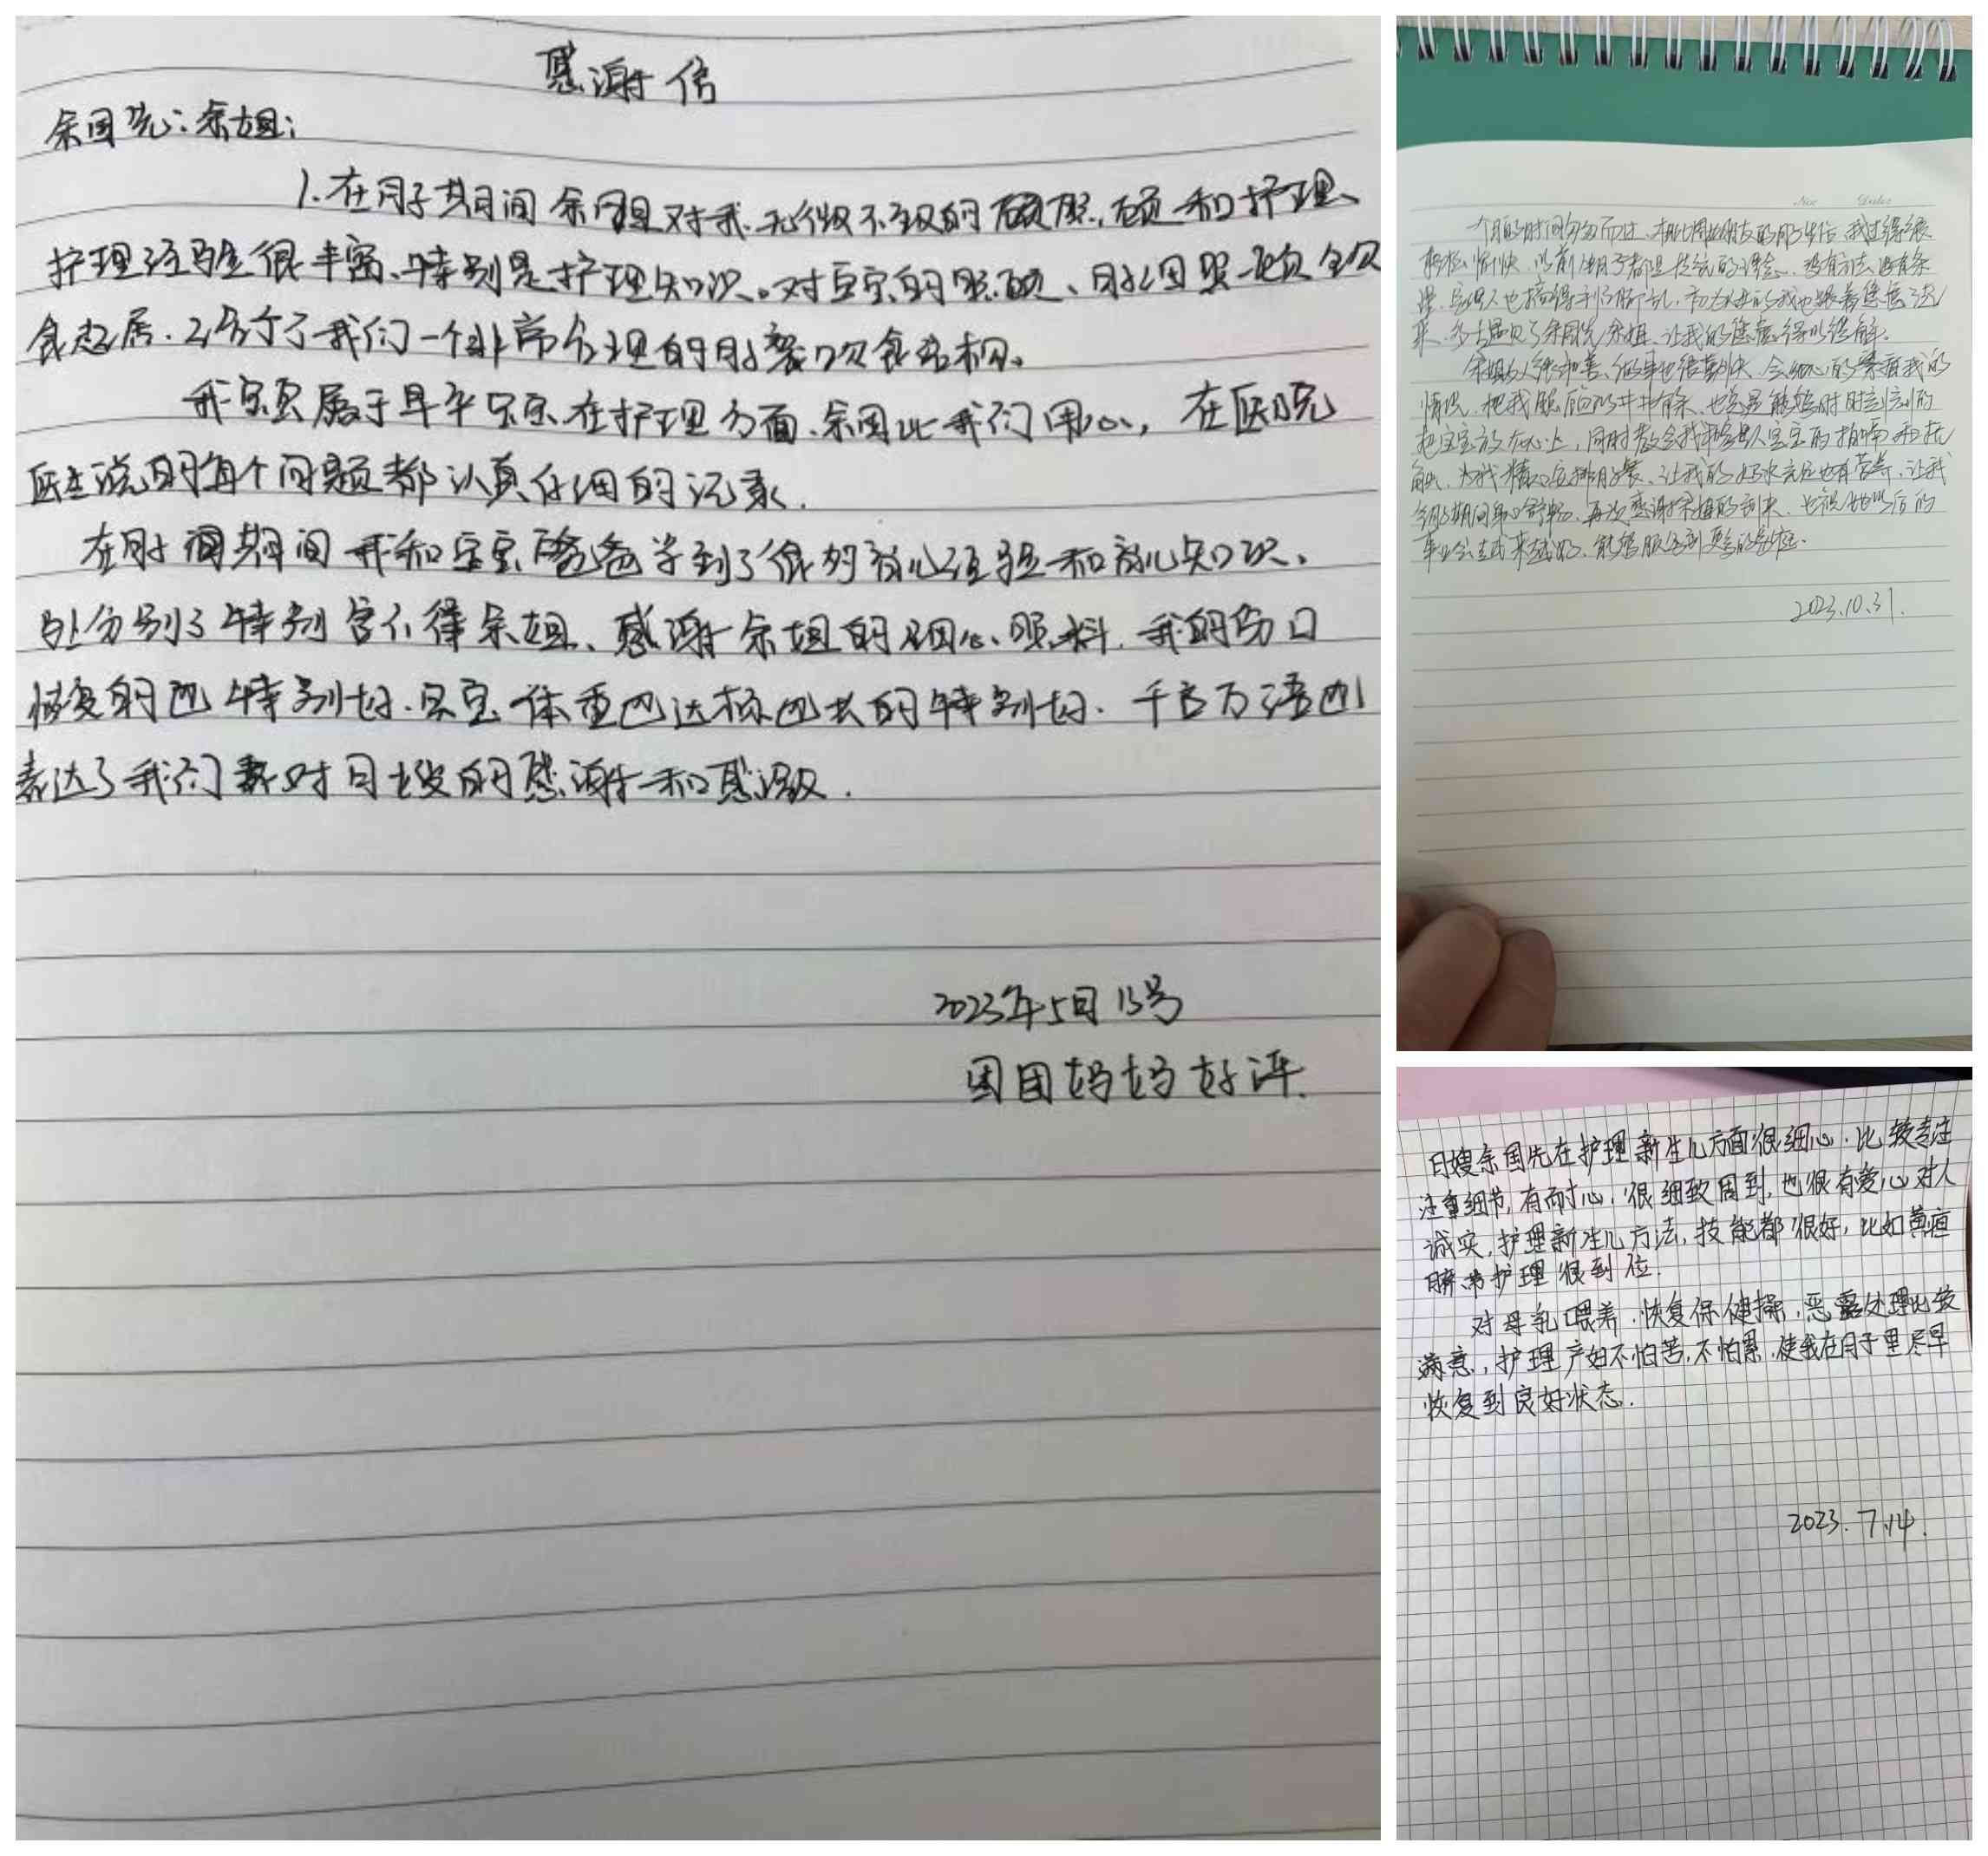 感谢信
余国先：余姐：
1.在月子期间余姐对我无微不致的照顾和护理、
护理经验很丰富、特别是护理知识。对宝宝的照顾、月心因照顾
食起居.
我宝宝属于早产宝宝.在护理方面.余国比我们用心，在医院
医生说的每个问题都认真仔细的记录.
在月期间我和宝宝爸爸学到了很多育儿经验和育儿知识、
分别了特别舍不得余姐、感谢余姐的细心照料.我的伤口
恢复的也特别好.宝宝体重也达标也长的特别好.千言万语也
表达了我们对月嫂的感谢和感激.
2023年5月13号
团团妈妈好评.
一个月的时间匆匆而过、相比周边朋友的月子生活,我过得很
轻松愉快.以前坐月子都是传统的理念、没有方法没有条
理、家里人也搞得手忙脚乱、
来.多亏遇见了余国先余姐、让我的焦虑得以缓解.
余姐人很和善、做事也很勤快、会细心的察看我的
情况、把我照顾的井井有条、也总是能够时时刻刻的
把宝宝放在心上,同时教会我和家里人宝宝的抚
触、为我精心安排月子餐、让我的奶水充足也有营养、让我
期间身心舒畅、再次感谢余姐的到来、也祝她以后的
事业会越来越好、能够服务到更多的家庭.
2023.10.31.
月嫂余国先在护理新生儿方面很细心.比较专注
注重细节,有耐心,很细致周到,也很有爱心对人
诚实,护理新生儿方法,技能都很好,比如黄疸
脐带护理很到位.
对母乳喂养.恢复保健操.恶露处理比较
满意,护理产妇不怕苦,不怕累.使我在月子里尽早
恢复到良好状态.
2023.7.14.